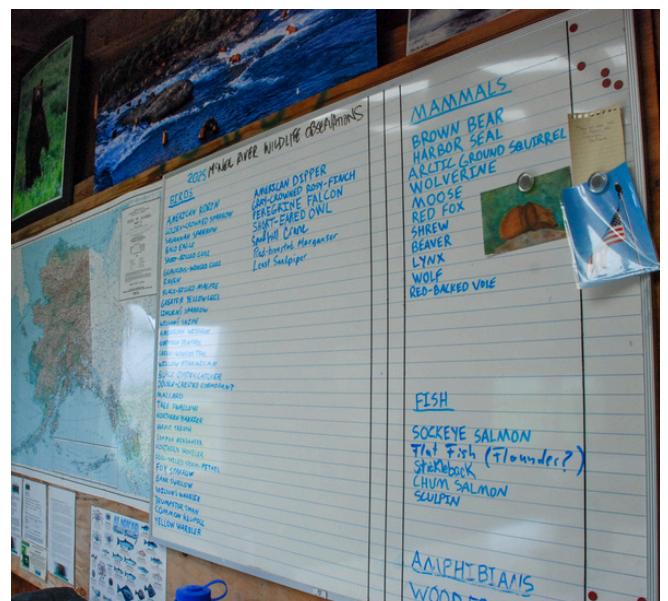 2025 McNEIL RIVER WILDLIFE OBSERVATIONS
BIRDS
AMERICAN ROBIN
GOLDEN-CROWNED SPARROW
SAVANNAH SPARROW
BALD EAGLE
SHORT-BILLED GULL
GLAUCOUS-WINGED GULL
RAVEN
BLACK-BILLED MAGPIE
GREATER YELLOWLEGS
LINCOLN'S SPARROW
WILSON'S SNIPE
AMERICAN
NORTHERN PINTAIL
GREEN-WINGED TEAL
WILLOW PTARMIGAN
BLACK OYSTERCATCHER
DOUBLE-CRESTED CORMORANT?
MALLARD
TREE SWALLOW
NORTHERN HARRIER
COMMON MERGANSER
NORTHERN
FORK-TAILED STORM-PETREL
FOX SPARROW
BANK SWALLOW
WILSON'S WARBLER
TRUMPETER SWAN
COMMON REDPOLL
YELLOW WARBLER
AMERICAN DIPPER
GRAY-CROWNED ROSY-FINCH
PEREGRINE FALCON
SHORT-EARED OWL
Sandhill Crane
Red-breasted Merganser
Least Sandpiper
MAMMALS
BROWN BEAR
HARBOR SEAL
ARCTIC GROUND SQUIRREL
WOLVERINE
MOOSE
RED FOX
SHREW
BEAVER
LYNX
WOLF
RED-BACKED VOLE
FISH
SOCKEYE SALMON
Flat Fish (Flounder?)
Stickleback
CHUM SALMON
SCULPIN
AMPHIBIANS